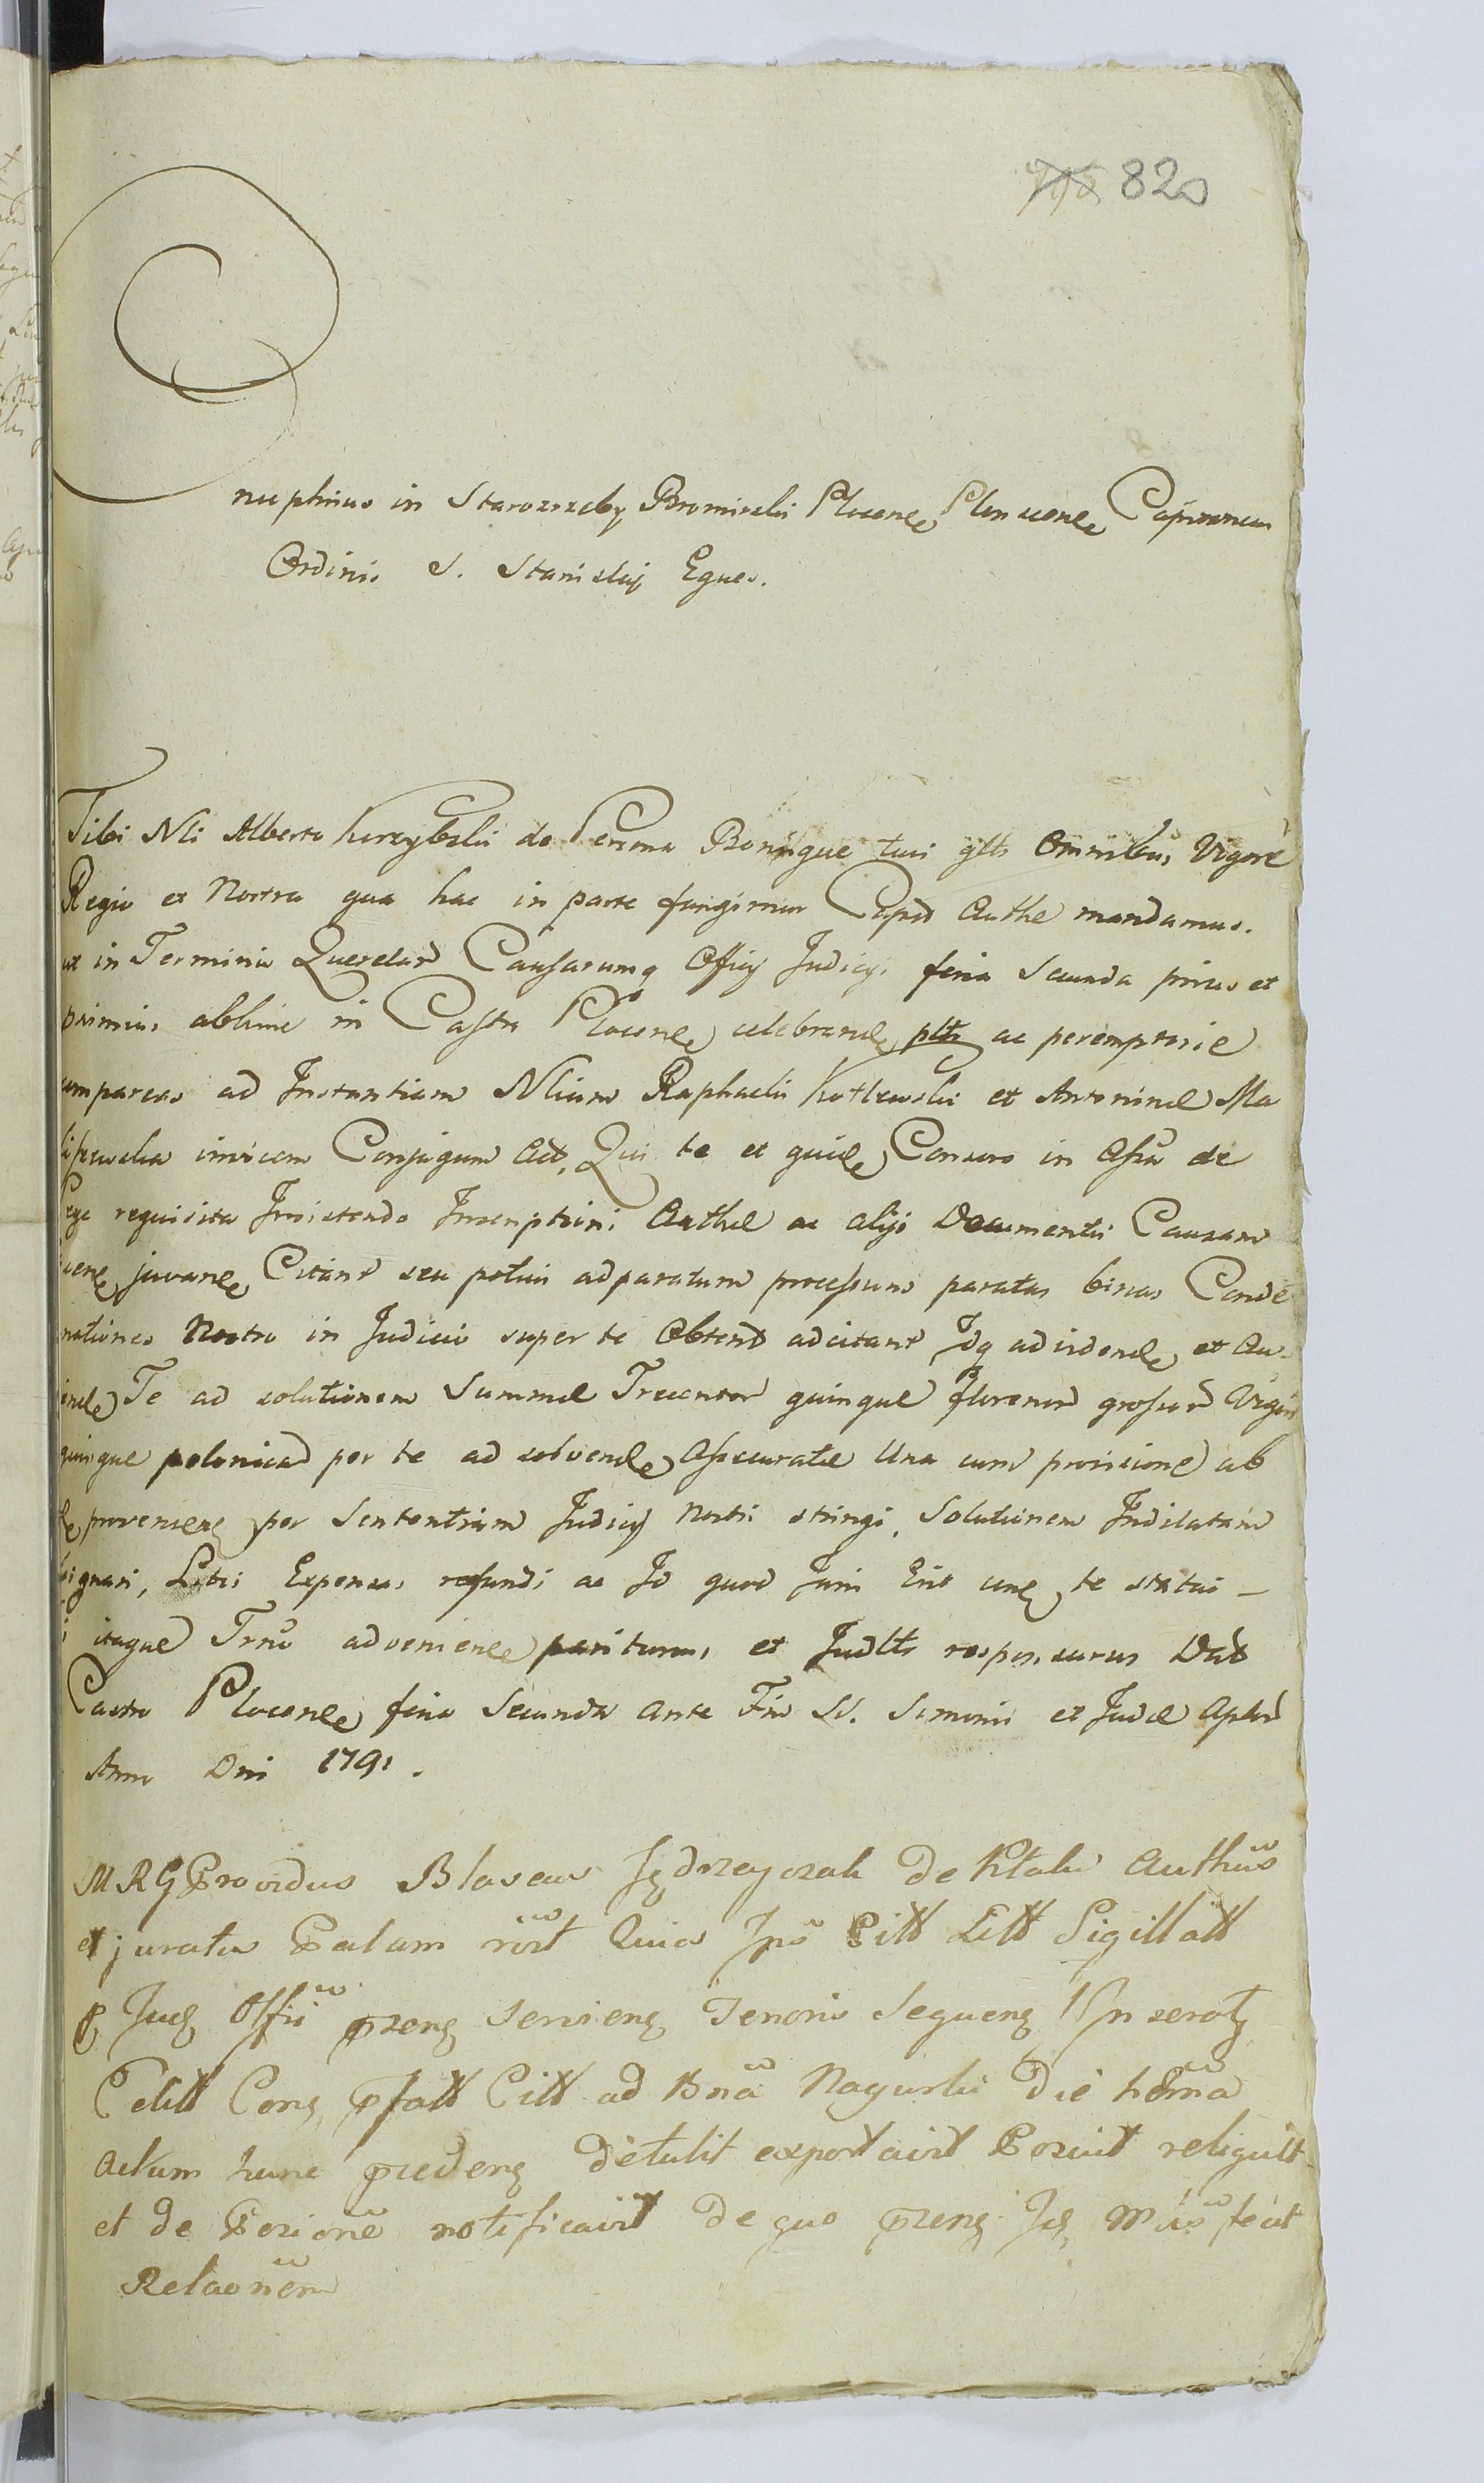 820
Onuphrius in Starozreby Bromirski Plocens Plonscens Capitaneus
Ordinis S. Stanislai Eques.
Tibi Nli Alberto de Persona Bonisque tuis gltr Omnibus Vigore
Regia et Nostra qua hac in parte fungimur Capit Authe mandamus.
ut in Terminis Querelar Causarumq Officij Judicij feria Secunda prius et
primius abhinc in Castro Plocens celebrand pltr ac peremptorie
compareas ad Instantiam Nlium Raphaelis Kotlewski et Antoninae Ma
invicem Conjugum Act, Qui te et quide Consors in Assa de
Lege requisita Insistendo Inscriptioni Authae ac alijs Documentis Causam
juvan Citant seu potius ad paratum processum paratas binas Conde
nationes Nostro in Judicio super te Obtent adcitant Idq ad vidend et Au-
diend Te ad solutionem Summae Trecentor quinque florenor grossor Vigin
quinque polonical per te ad solvend Assecuratae Una cum provisione ab
e proveniens per Sententiam Judicij Nostri stringi, Solutionem Indilatam
signari, Litis Expensas refundi ac Id quod Juris Erit cens te statui –
itaque Trno adveniens pariturus et Judltr responsurus Dat
Castro Plocens feria Secunda ante Fm SS. Simonis et Judae Aplor
Anno Dni 1791.
M R G Providus Blaseus Jędrzeyczak de Authus
et juratus Palam rort Quia Ips Citt Litt Sigillatt
p Jud Offii przens Serviens Tenoris Sequens Inserot
Cons pfatt Citt ad Bna Nagurki Die
Actum hunc praedens detulit exportavit Posuit reliquit
et de Posione notificavit de quo przens Ids Mius fecit
Relaonem